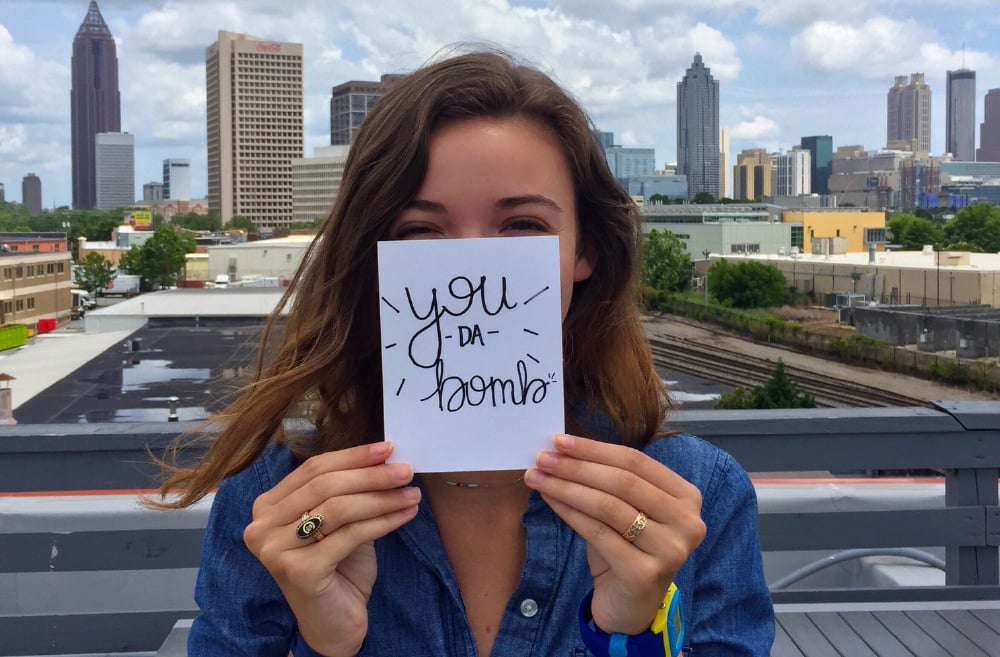 Coca-Cola
you
-DA-
bomb